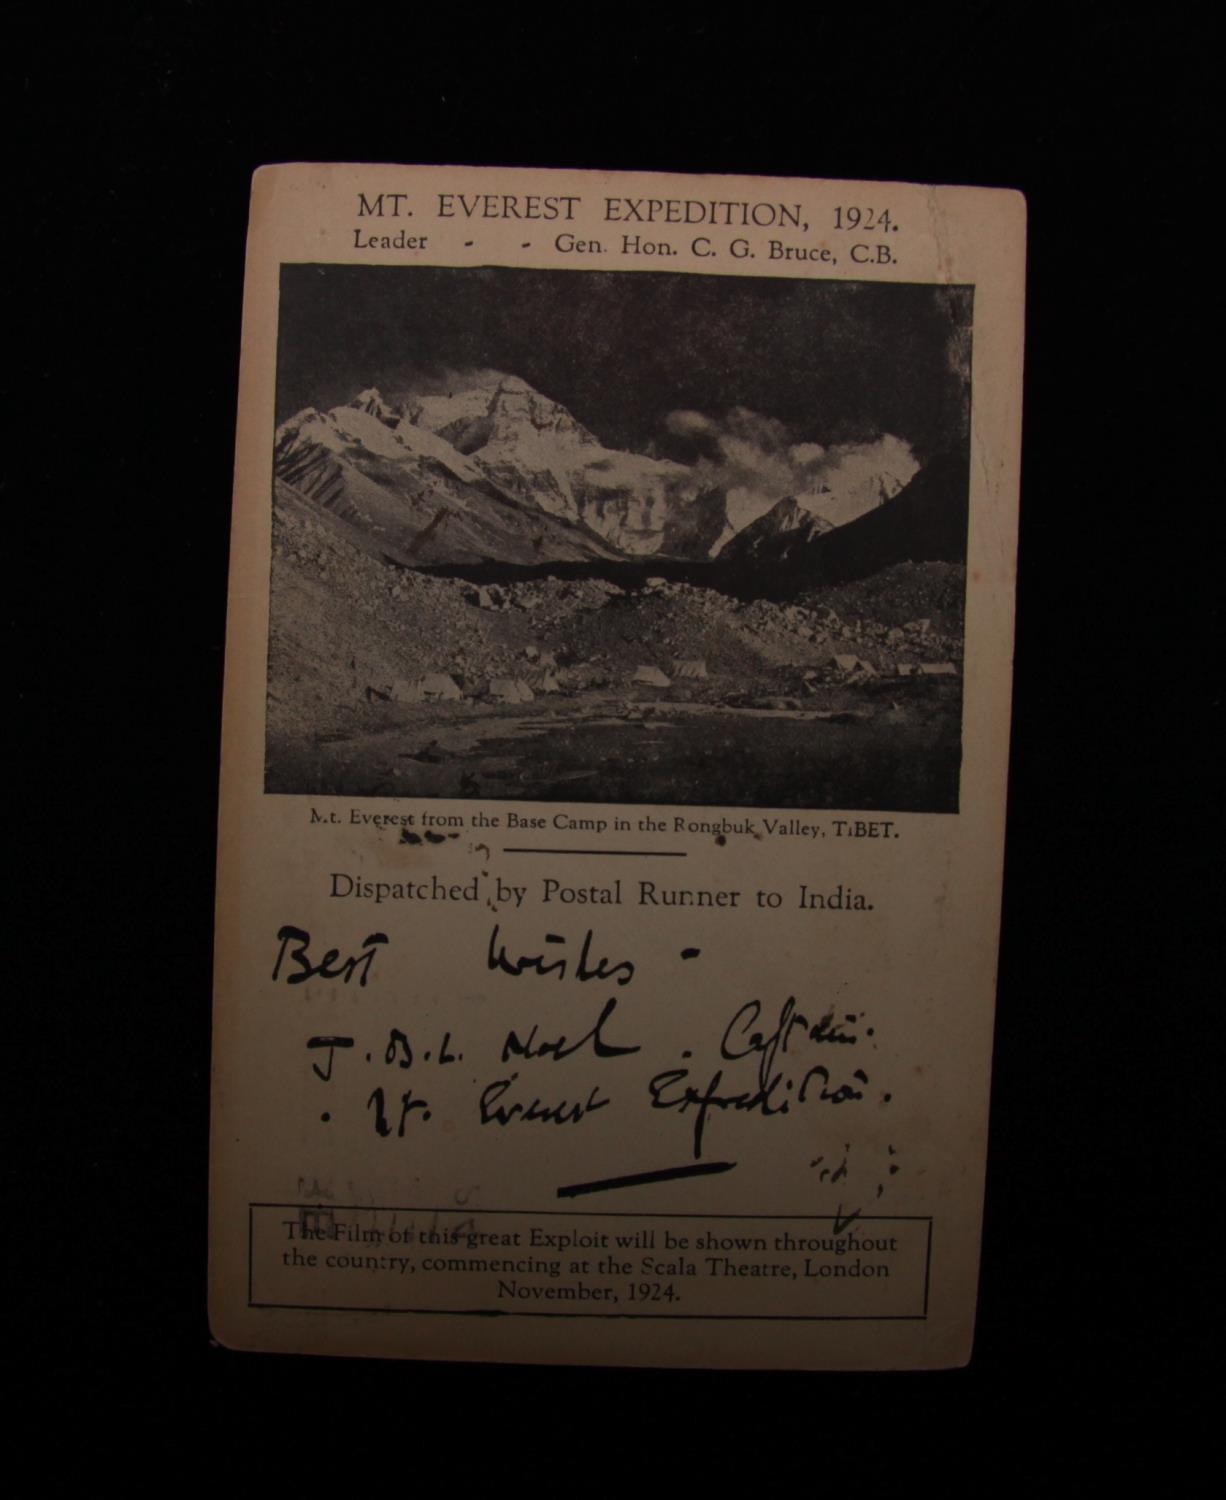 MT. EVEREST EXPEDITION, 1924.
Leader - - Gen. Hon. C. G. Bruce, C.B.
Mt. Everest from the Base Camp in the Rongbuk Valley, TiBET.
Dispatched by Postal Runner to India.
Best Wishes -
J.B.L. Noel. Captain.
. Mt. Everest Expedition.
The Film of this great Exploit will be shown throughout
the country, commencing at the Scala Theatre, London
November, 1924.